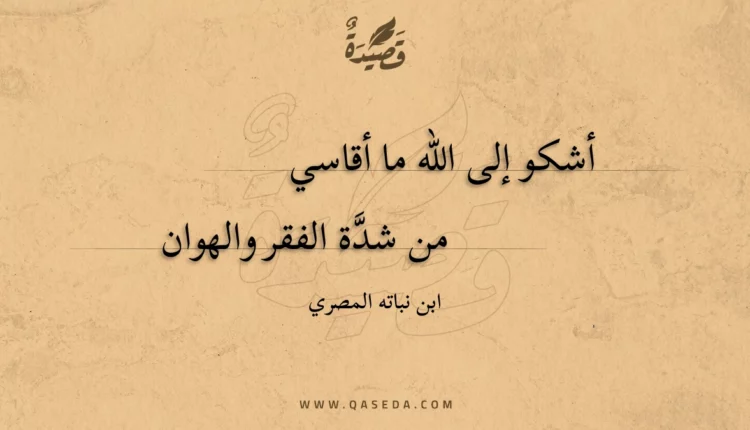 قَصِيْدَةٌ
أشكو إلى الله ما أقاسي
من شدَّة الفقر والهوان
ابن نباته المصري
WWW.QASEDA.COM